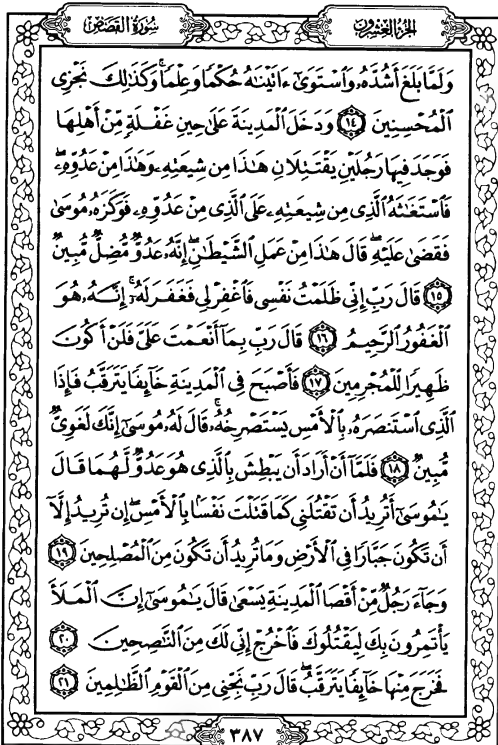 سُورَةُ القَصَصِ
الجُزءُ العِشْرُونَ
وَلَمَّا بَلَغَ أَشُدَّهُۥ وَٱسْتَوَىٰٓ ءَاتَيْنَٰهُ حُكْمًا وَعِلْمًا ۚ وَكَذَٰلِكَ نَجْزِى
ٱلْمُحْسِنِينَ ١٤ وَدَخَلَ ٱلْمَدِينَةَ عَلَىٰ حِينِ غَفْلَةٍ مِّنْ أَهْلِهَا
فَوَجَدَ فِيهَا رَجُلَيْنِ يَقْتَتِلَانِ هَٰذَا مِن شِيعَتِهِۦ وَهَٰذَا مِنْ عَدُوِّهِۦ ۖ
فَٱسْتَغَٰثَهُ ٱلَّذِى مِن شِيعَتِهِۦ عَلَى ٱلَّذِى مِنْ عَدُوِّهِۦ فَوَكَزَهُۥ مُوسَىٰ
فَقَضَىٰ عَلَيْهِ ۖ قَالَ هَٰذَا مِنْ عَمَلِ ٱلشَّيْطَٰنِ ۖ إِنَّهُۥ عَدُوٌّ مُّضِلٌّ مُّبِينٌ
١٥ قَالَ رَبِّ إِنِّى ظَلَمْتُ نَفْسِى فَٱغْفِرْ لِى فَغَفَرَ لَهُۥٓ ۚ إِنَّهُۥ هُوَ
ٱلْغَفُورُ ٱلرَّحِيمُ ١٦ قَالَ رَبِّ بِمَآ أَنْعَمْتَ عَلَىَّ فَلَنْ أَكُونَ
ظَهِيرًا لِّلْمُجْرِمِينَ ١٧ فَأَصْبَحَ فِى ٱلْمَدِينَةِ خَآئِفًا يَتَرَقَّبُ فَإِذَا
ٱلَّذِى ٱسْتَنصَرَهُۥ بِٱلْأَمْسِ يَسْتَصْرِخُهُۥ ۚ قَالَ لَهُۥ مُوسَىٰٓ إِنَّكَ لَغَوِىٌّ
مُّبِينٌ ١٨ فَلَمَّآ أَنْ أَرَادَ أَن يَبْطِشَ بِٱلَّذِى هُوَ عَدُوٌّ لَّهُمَا قَالَ
يَٰمُوسَىٰٓ أَتُرِيدُ أَن تَقْتُلَنِى كَمَا قَتَلْتَ نَفْسًۢا بِٱلْأَمْسِ ۖ إِن تُرِيدُ إِلَّآ
أَن تَكُونَ جَبَّارًا فِى ٱلْأَرْضِ وَمَا تُرِيدُ أَن تَكُونَ مِنَ ٱلْمُصْلِحِينَ ١٩
وَجَآءَ رَجُلٌ مِّنْ أَقْصَا ٱلْمَدِينَةِ يَسْعَىٰ قَالَ يَٰمُوسَىٰٓ إِنَّ ٱلْمَلَأَ
يَأْتَمِرُونَ بِكَ لِيَقْتُلُوكَ فَٱخْرُجْ إِنِّى لَكَ مِنَ ٱلنَّٰصِحِينَ ٢٠
فَخَرَجَ مِنْهَا خَآئِفًا يَتَرَقَّبُ ۖ قَالَ رَبِّ نَجِّنِى مِنَ ٱلْقَوْمِ ٱلظَّٰلِمِينَ ٢١
٣٨٧